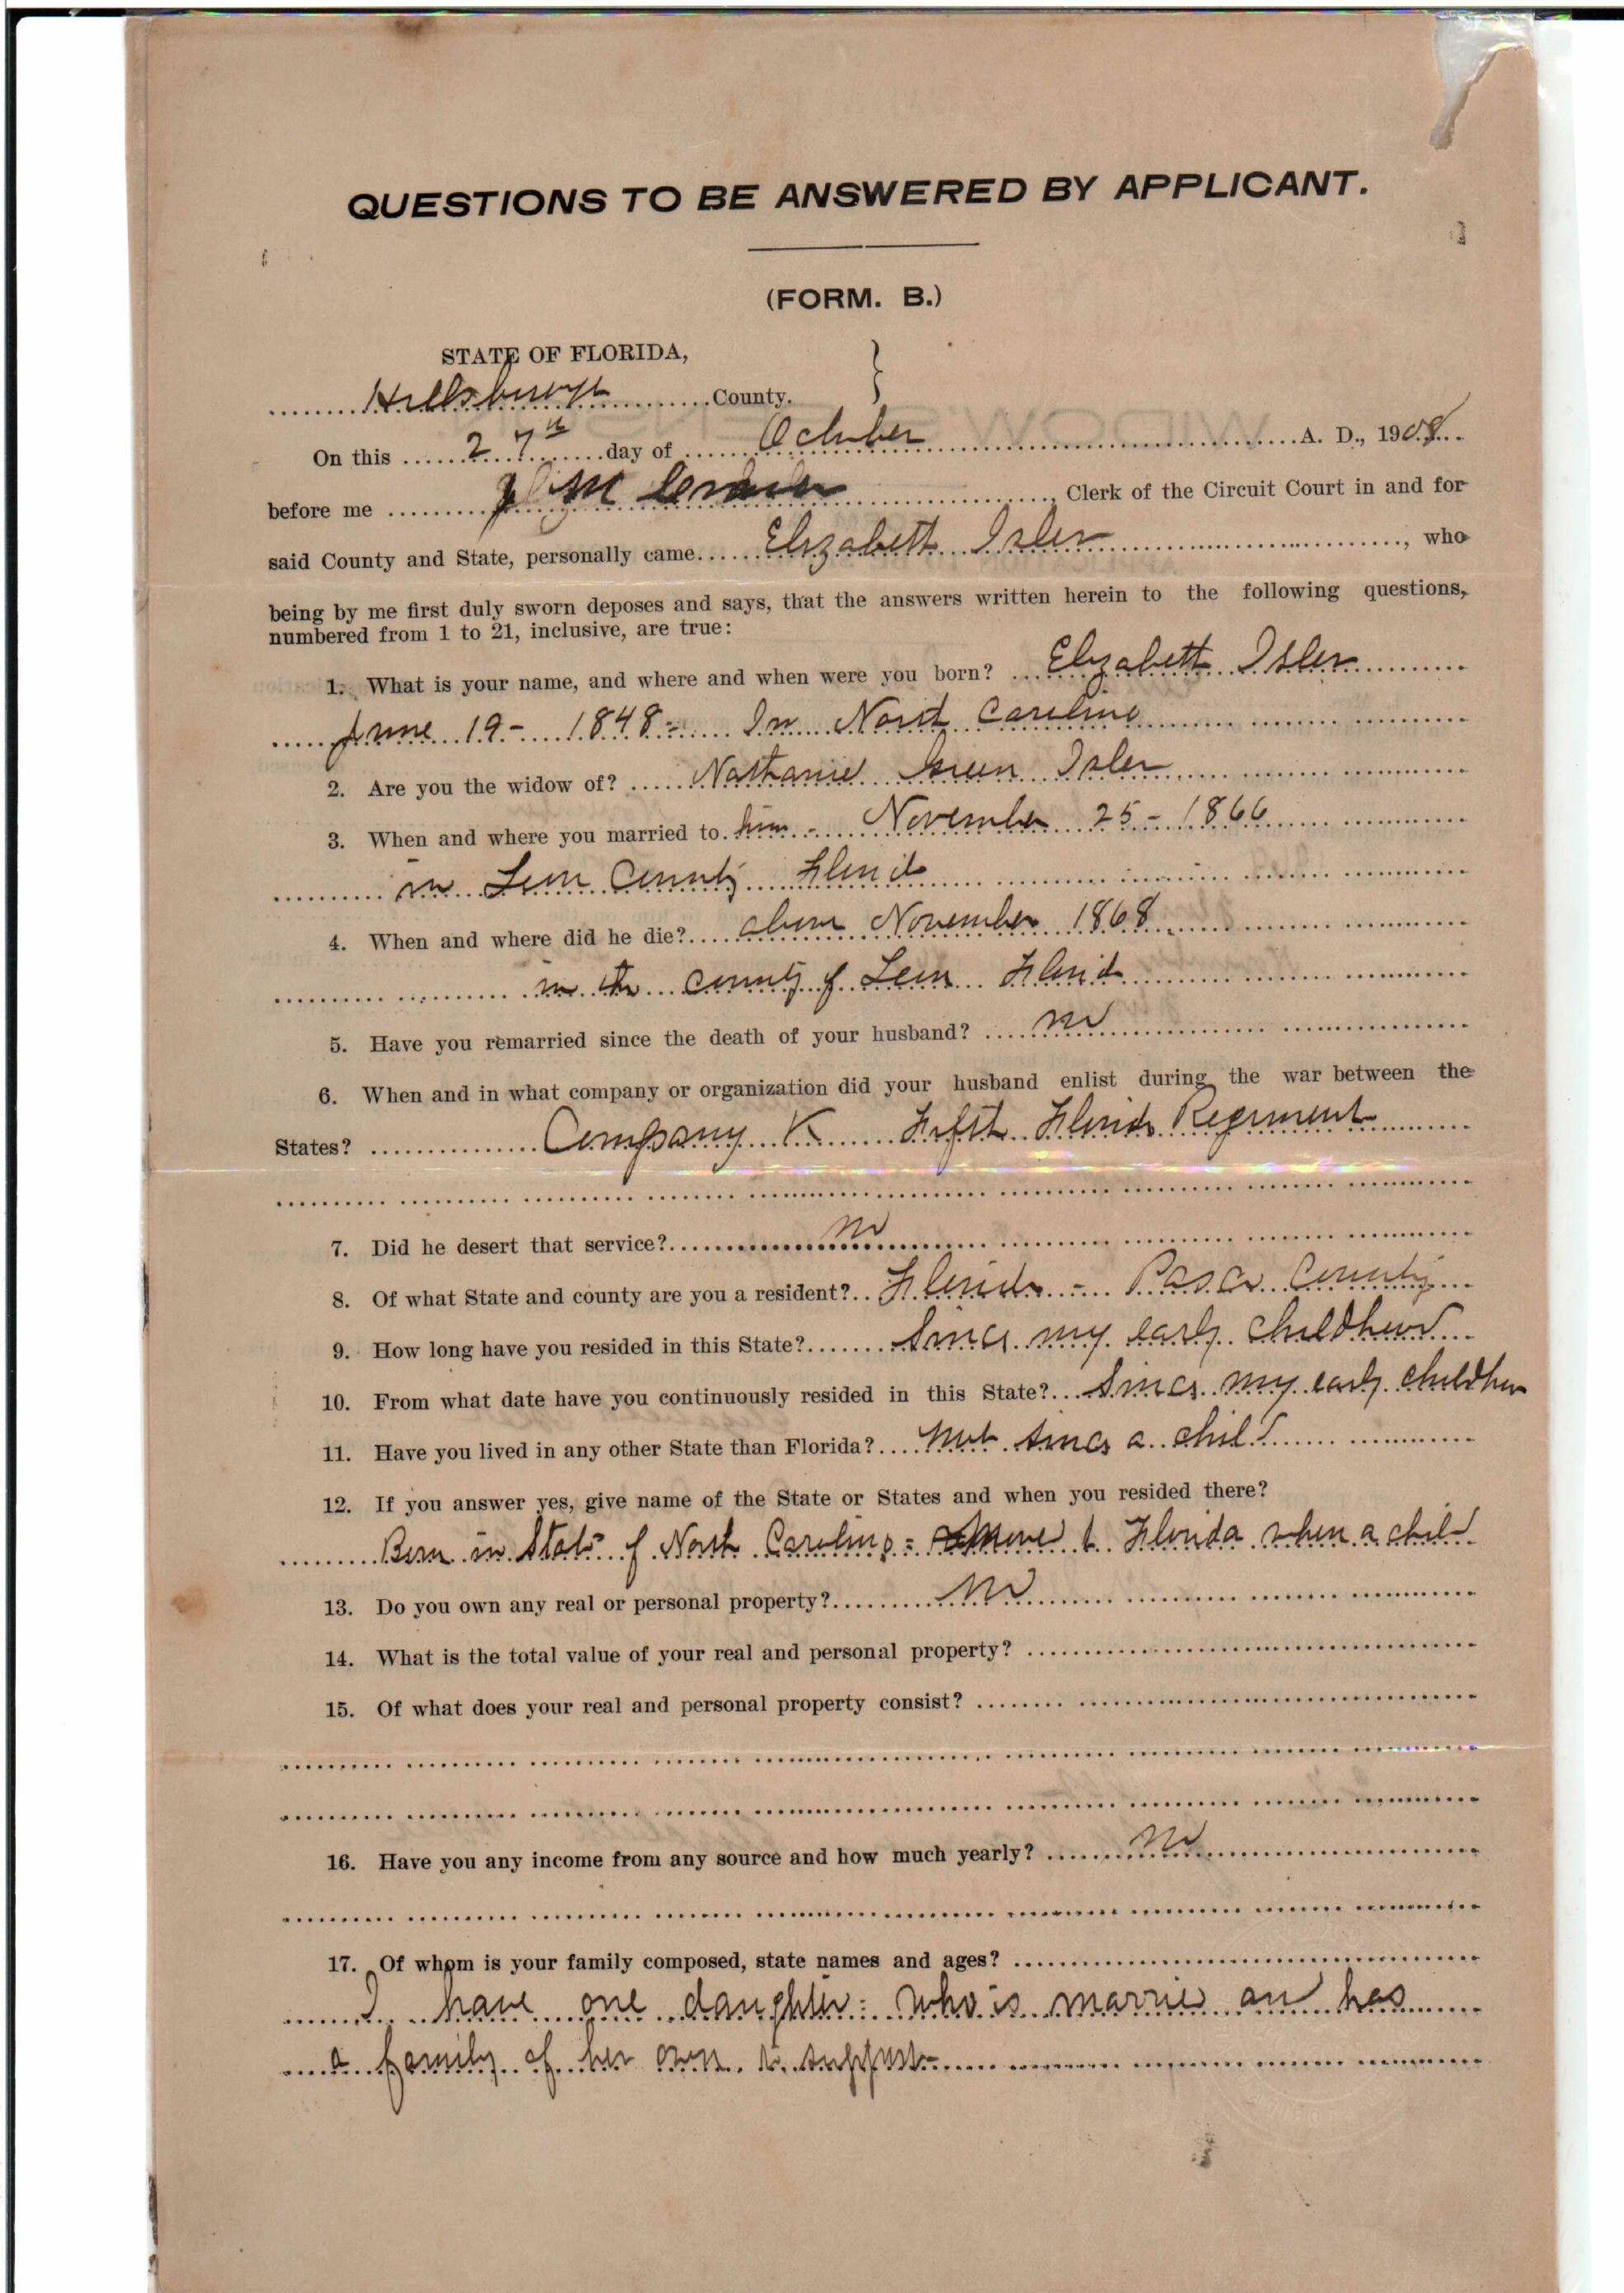 QUESTIONS TO BE ANSWERED BY APPLICANT.
(FORM. B.)
STATE OF FLORIDA,
Hillsborough County.
On this 27th day of October A. D., 1908
before me Clerk of the Circuit Court in and for
said County and State, personally came Elizabeth Isler, who
being by me first duly sworn deposes and says, that the answers written herein to the following questions,
numbered from 1 to 21, inclusive, are true:
1. What is your name, and where and when were you born? Elizabeth Isler
June 19 - 1848 - In North Carolina
2. Are you the widow of? Nathaniel Green Isler
3. When and where you married to him - November 25 - 1866
in Leon County Florida
4. When and where did he die? about November 1868
in the county of Leon Florida
5. Have you remarried since the death of your husband? no
6. When and in what company or organization did your husband enlist during the war between the
States? Company K Fifth Florida Regiment
7. Did he desert that service? no
8. Of what State and county are you a resident? Florida - Pasco County
9. How long have you resided in this State? Since my early childhood
10. From what date have you continuously resided in this State? Since my early childhoo
11. Have you lived in any other State than Florida? Not since a child
12. If you answer yes, give name of the State or States and when you resided there?
Born in State of North Carolina = Move to Florida when a child
13. Do you own any real or personal property? No
14. What is the total value of your real and personal property?
15. Of what does your real and personal property consist?
16. Have you any income from any source and how much yearly? No
17. Of whom is your family composed, state names and ages?
I have one daughter: who is married and has
a family of her own to support